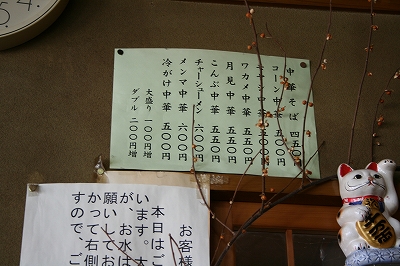 中華そば 四五〇円
コーン中華 五〇〇円
ワカメ中華 五五〇円
月見中華 五五〇円
こんぶ中華 五五〇円
チャーシューメン 六〇〇円
メンマ中華 六〇〇円
冷がけ中華 五〇〇円
大盛り 一〇〇円増
ダブル 二〇〇円増
お客様
本日はご
います。大
が、お水は
願いてお
かって右側
すので、ご